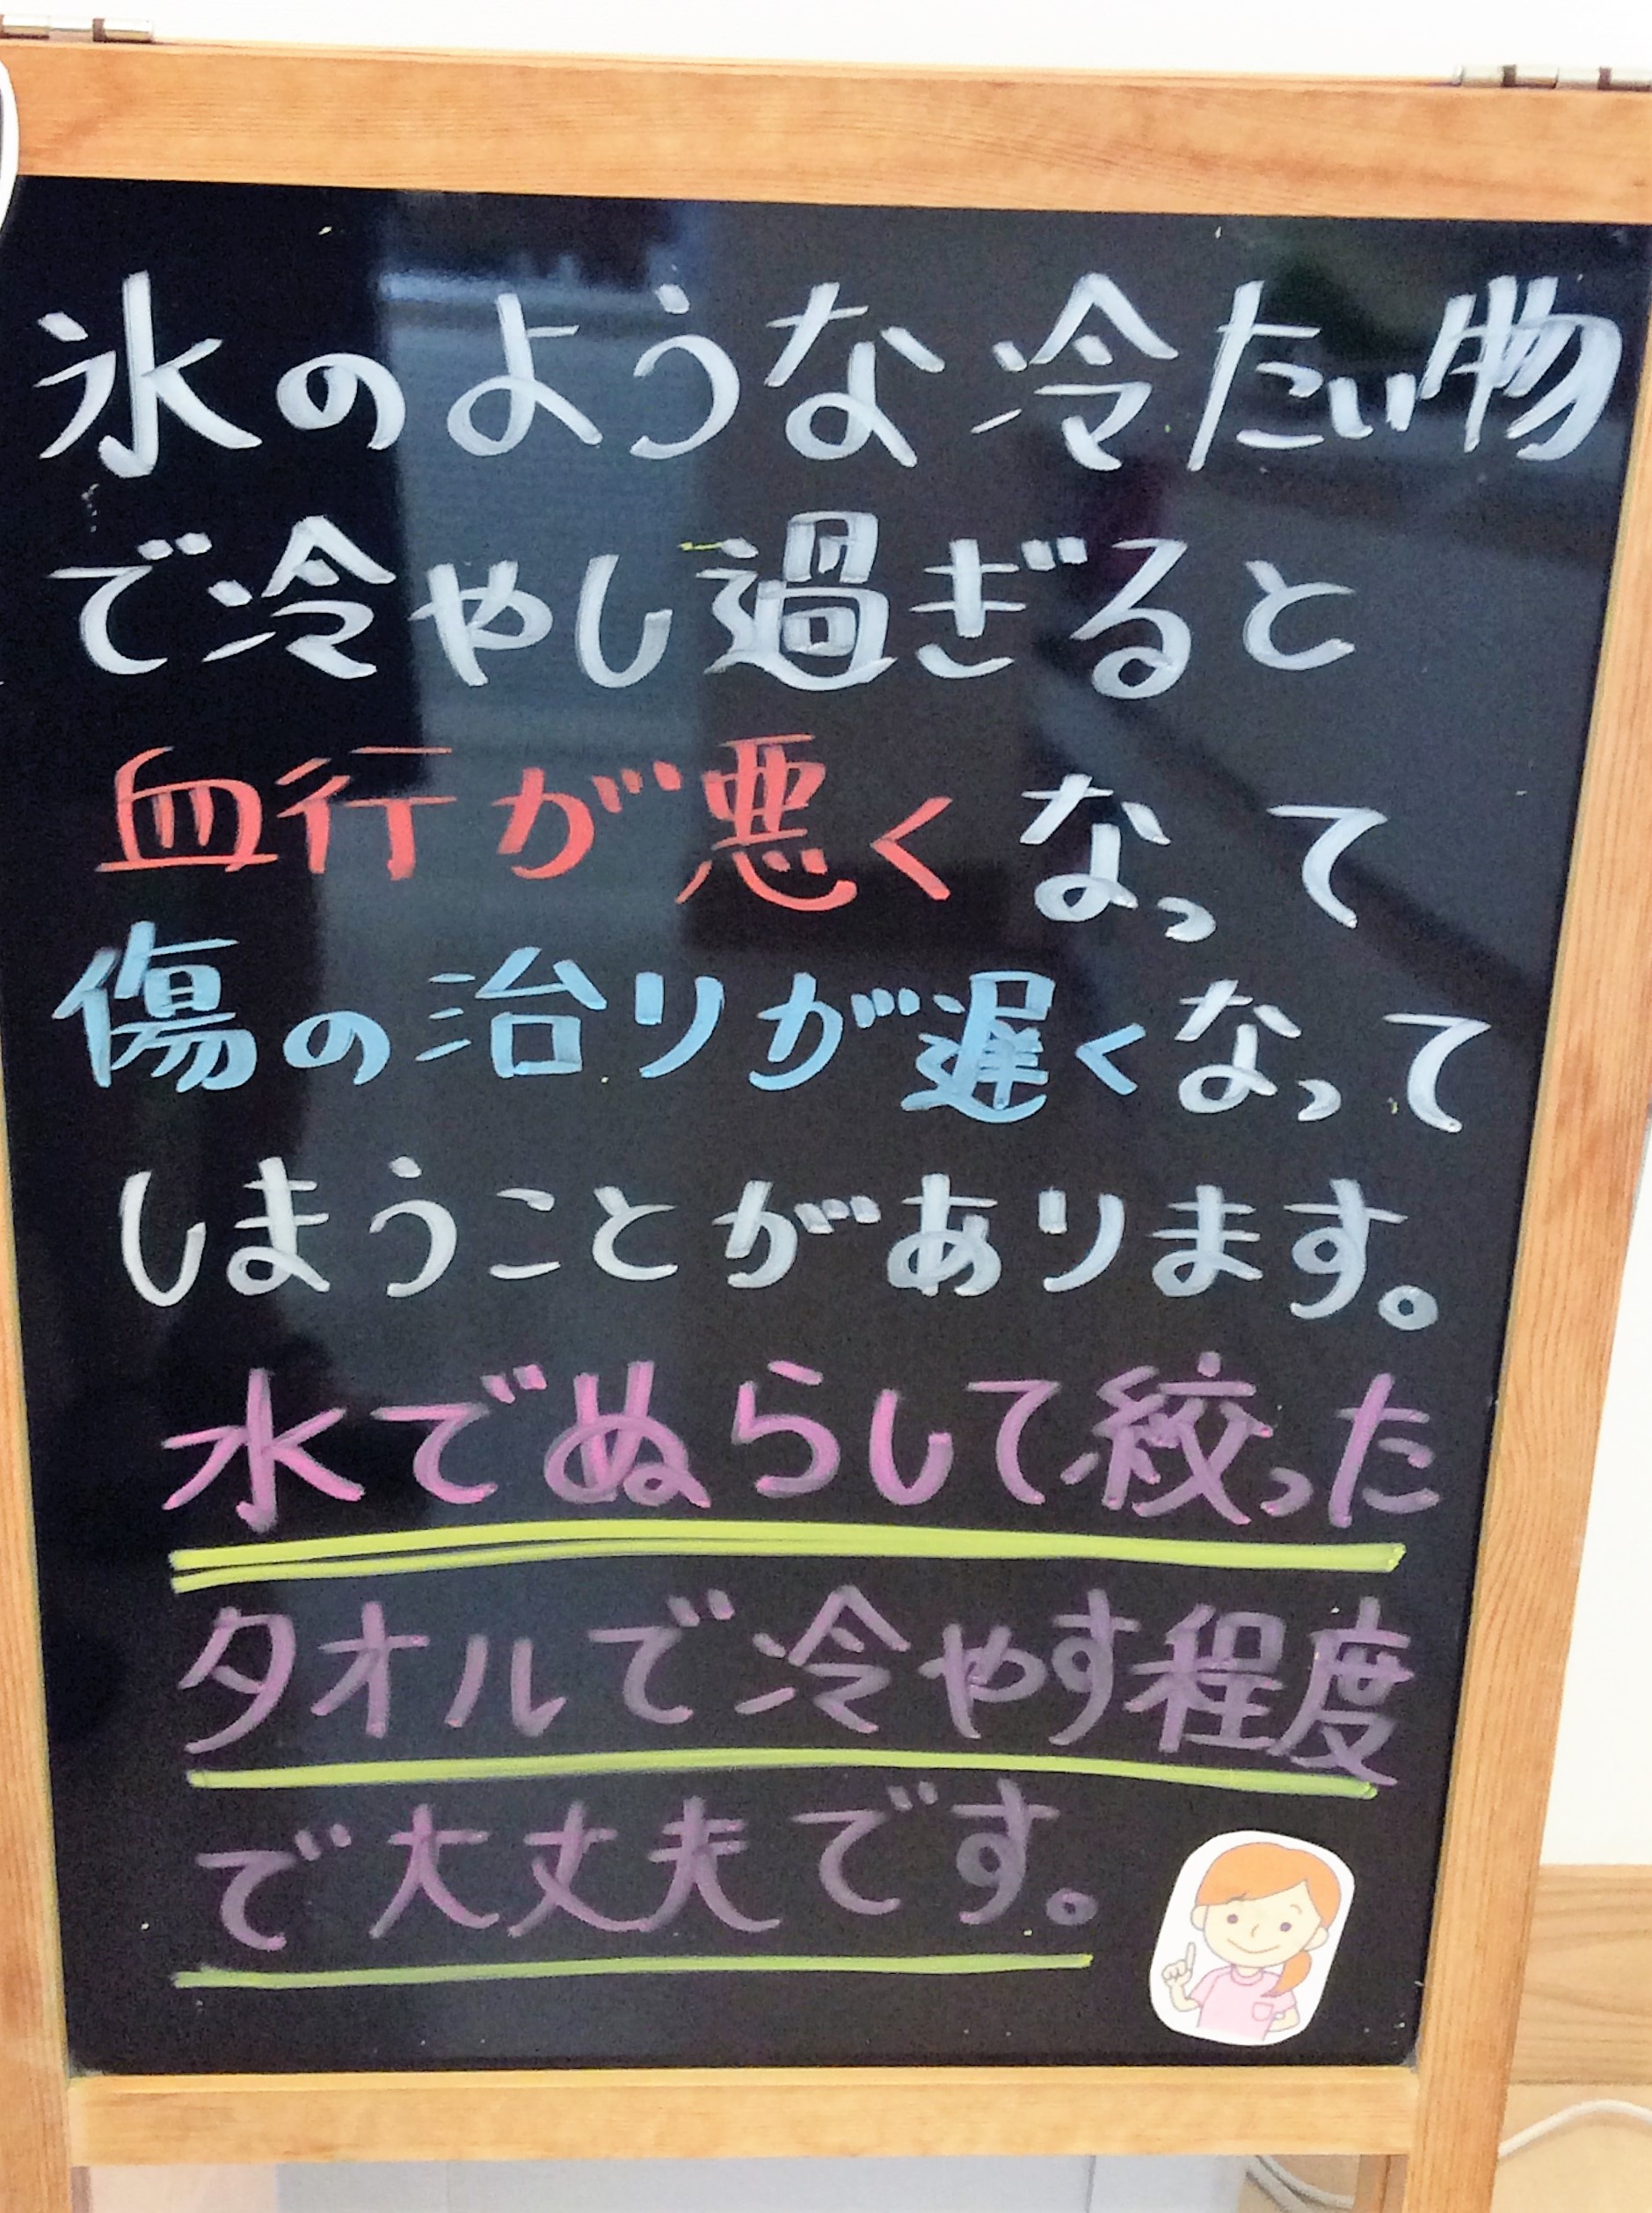 氷のような冷たい物
で冷やし過ぎると
血行が悪くなって
傷の治りが遅くなって
しまうことがあります。
水でぬらして絞った
タオルで冷やす程度
で大丈夫です。